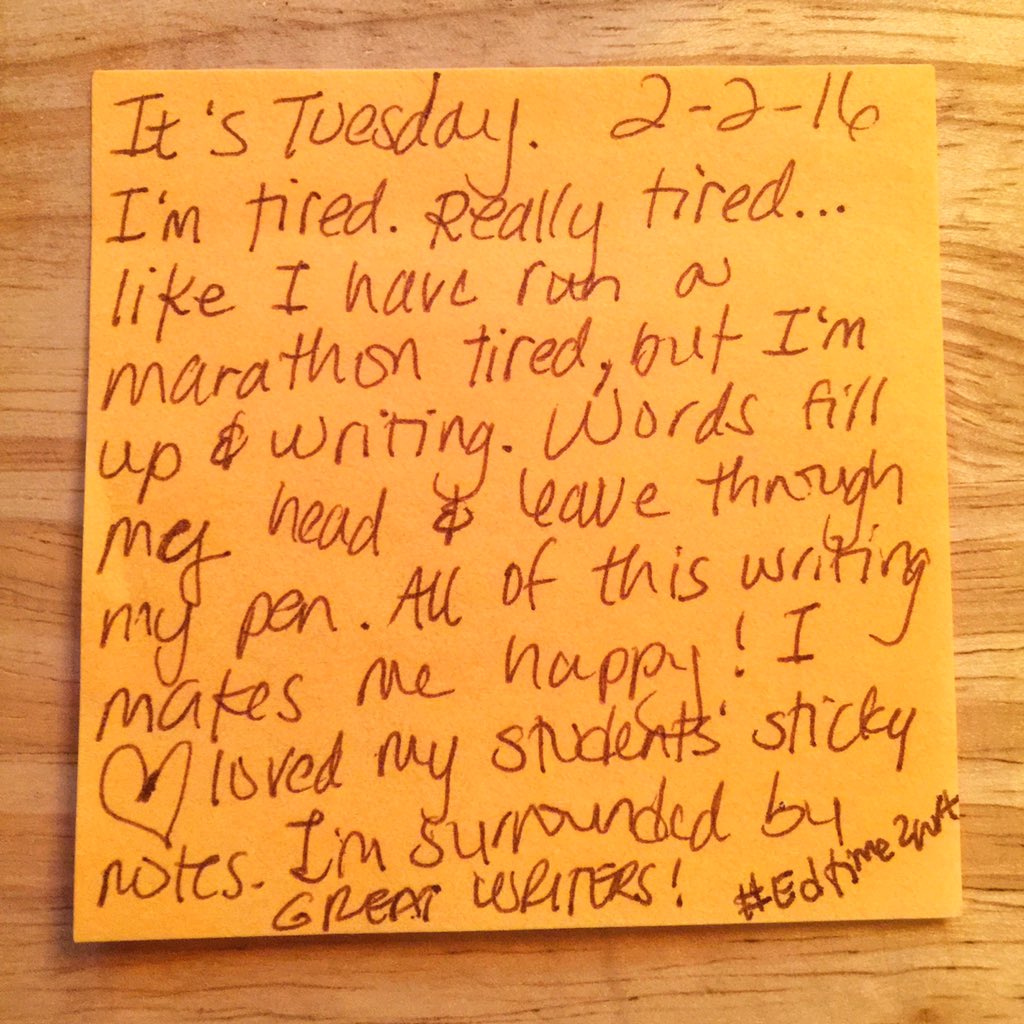 It's Tuesday. 2-2-16
I'm tired. Really tired...
like I have run a
marathon tired, but I'm
up & writing. Words fill
my head & leave through
my pen. All of this writing
makes me happy! I
♡ loved my students' sticky
notes. I'm surrounded by
GREAT WRITERS! #Edtime2writ